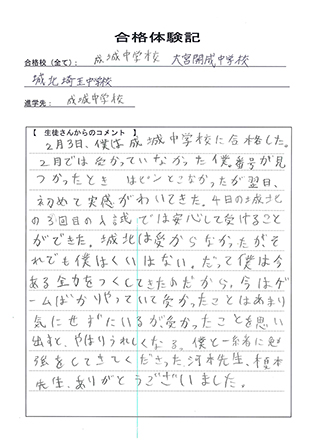 合格体験記
合格校(全て): 成城中学校 大宮開成中学校
城北埼玉中学校
進学先: 成城中学校
【 生徒さんからのコメント 】
2月3日、僕は成城中学校に合格した。
2月では受かっていなかった僕の番号が見
つかったとき はピンとこなかったが翌日、
初めて実感がわいてきた。4日の城北
の3回目の入試では安心して受けること
ができた。城北は受からなかったがそ
れでも僕はくいはない。だって僕は今
ある全力をつくしてきたのだから。今はゲ
ームばかりやっていて受かったことはあまり
気にせずにいるが、受かったことを思い
出すと、やはりうれしくなる。僕と一緒に勉
強をしてきてくださった河本先生、植木
先生、ありがとうございました。